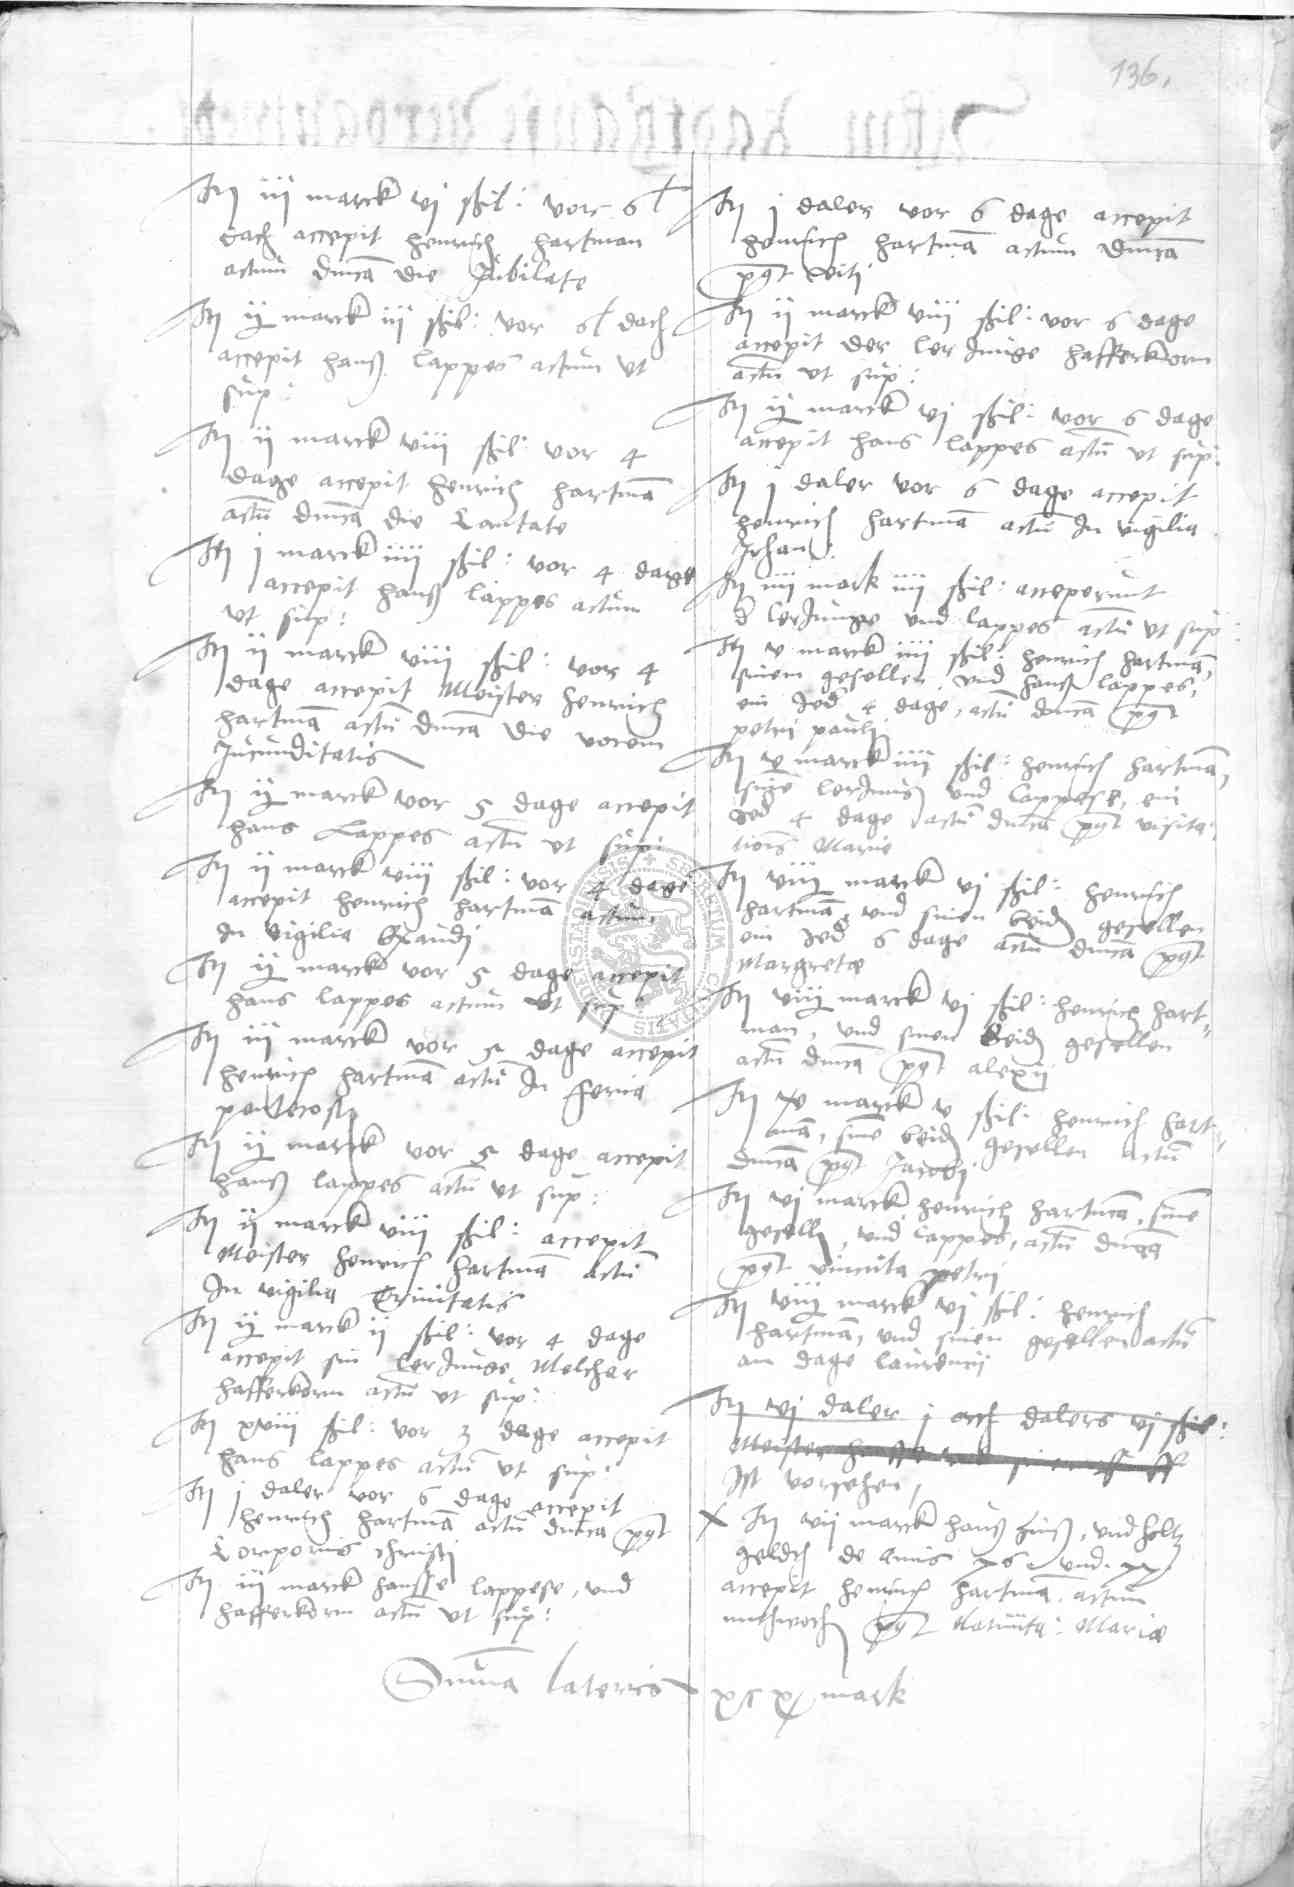 136.
Itm iij marck vj ßil: vor 6½
dach accepit henrich hartman
actum dnica die Jubilate
Itm ij½ marck iij ßil: vor 6½ dach
accepit hanß lappes actum ut
sup:
Itm ij marck viij ßil: vor 4
dage accepit henrich hartmā
actū dnicā die Cantate
Itm j marck iiij ßil: vor 4 dage
accepit hanß lappes actum
ut sup:
Itm ij marck viij ßil: vor 4
dage accepit Meister henrich
hartmā actū dnicā die vocem
Jucunditatis
Itm ij½ marck vor 5 dage accepit
hans Lappes actū ut sup:
Itm ij marck viij ßil: vor 4 dage
accepit henrich hartmā actum
In vigilia Exaudj
Itm ij½ marck vor 5 dage accepit
hans lappes actum ut sup
Itm iij marck vor 5 dage accepit
henrich hartmā actū In feria
pentecost
Itm ij½ marck vor 5 dage accepit
hanß lappes actū ut sup:
Itm ij marck viij ßil: accepit
Meister henrich hartmā actū
In vigilia Trinitatis
Itm ij½ marck ij ßil: vor 4 dage
accepit sin lerJunge Melcher
hafferkorn actū ut sup:
Itm xviij ßil: vor 3 dage accepit
hans lappes actū ut sup:
Itm j daler vor 6 dage accepit
henrich hartmā actū dnica pst
Corporis christj
Itm iij marck hansse lappese, und
hafferkorn actū ut sup:
Itm j daler vor 6 dage accepit
henrich hartmā actum dnicā
pst viti
Itm ij marck viij ßil: vor 6 dage
accepit der lerJunge hafferkorn
actū ut sup:
Itm ij½ marck vj ßil: vor 6 dage
accepit hans lappes actū ut sup:
Itm j daler vor 6 dage accepit
henrich hartmā actū In vigilia
Johan:
Itm iiij mark iiij ßil: acceperunt
d lerJunge und lappes actū ut sup:
Itm v marck iiij ßil: henrich hartmā,
sinem gesellen, und hanß lappes,
ein Jed 4 dage, actū dnicā pst
petri paulj
Itm v marck iiij ßil: henrich hartmā,
sinē lerJung und lappese, ein
Jed 4 dage actū dnicā pst visita
tionis Marie
Itm viij½ marck vj ßil: henrich
hartmā, und sinen beidn gesellen
ein Jed 6 dage actū dnicā pst
Margretæ
Itm viij½ marck vj ßil: henrich hart=
man, und sinen beidn gesellen
actū dnica pst alexij
Itm marck v ßil: henrich hart=
mā, sinē beidn gesellen actū
dnicā pst Jacobj
Itm vj marck henrich hartmā, sinē
geselln, und lappes, actū dnicā
pst vincula petri
Itm viij½ marck vj ßil: henrich
hartmā, und sinen gesellen actū
am dage laurencij
Itm vj daler j ort dalers vj ßil:
Meister
Ist vorsehen,
x Itm vij marck hanß, und holtz
geldes de annis und
accepit henrich hartmā actum
mithwoch pst Natiuita: Mariæ
Suma lateris xcx½ mark
SECRETUM CIVITATIS